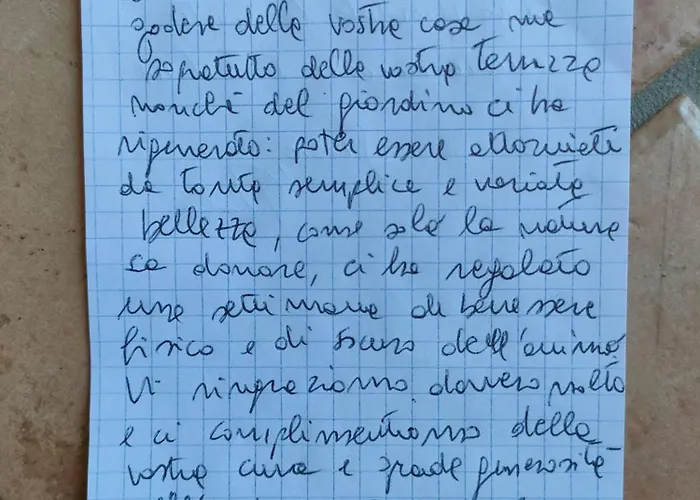 godere delle vostre case ma
sopratutto delle vostre Terrazze
nonché del giardino ci ha
rigenerato: poter essere attorniati
da tante semplice e variate
bellezze, come solo la natura
sa donare, ci ha regalato
una settimana di benessere
fisico e di dell'animo.
Vi ringraziamo davvero molto
e ci complimentiamo della
vostra cura e grade generosità